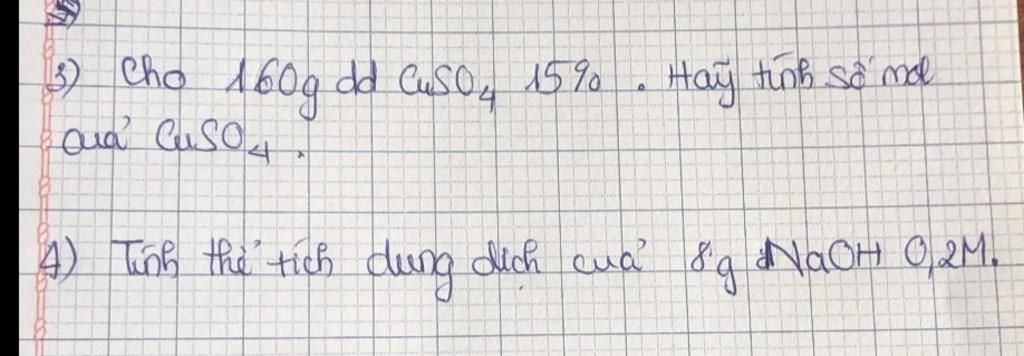 3) Cho 160g dd CuSO₄ 15%. Hãy tính số mol
của CuSO₄.
4) Tính thể tích dung dịch của 8g NaOH 0,2M.